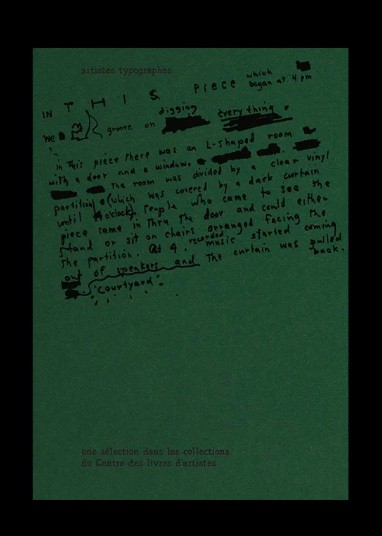 artistes typographes
IN THIS piece which
began at 4 pm
we groove on digging everything.
in this piece there was an L-shaped room
with a door and a window.
The room was divided by a clear vinyl
partition (which was covered by a dark curtain
until 4 o'clock). People who came to see the
piece came in thru the door and could either
stand or sit on chairs arranged facing the
the partition. At 4, recorded music started coming
out of speakers and the curtain was pulled
back.
"Courtyard"
une sélection dans les collections
du Centre des livres d'artistes